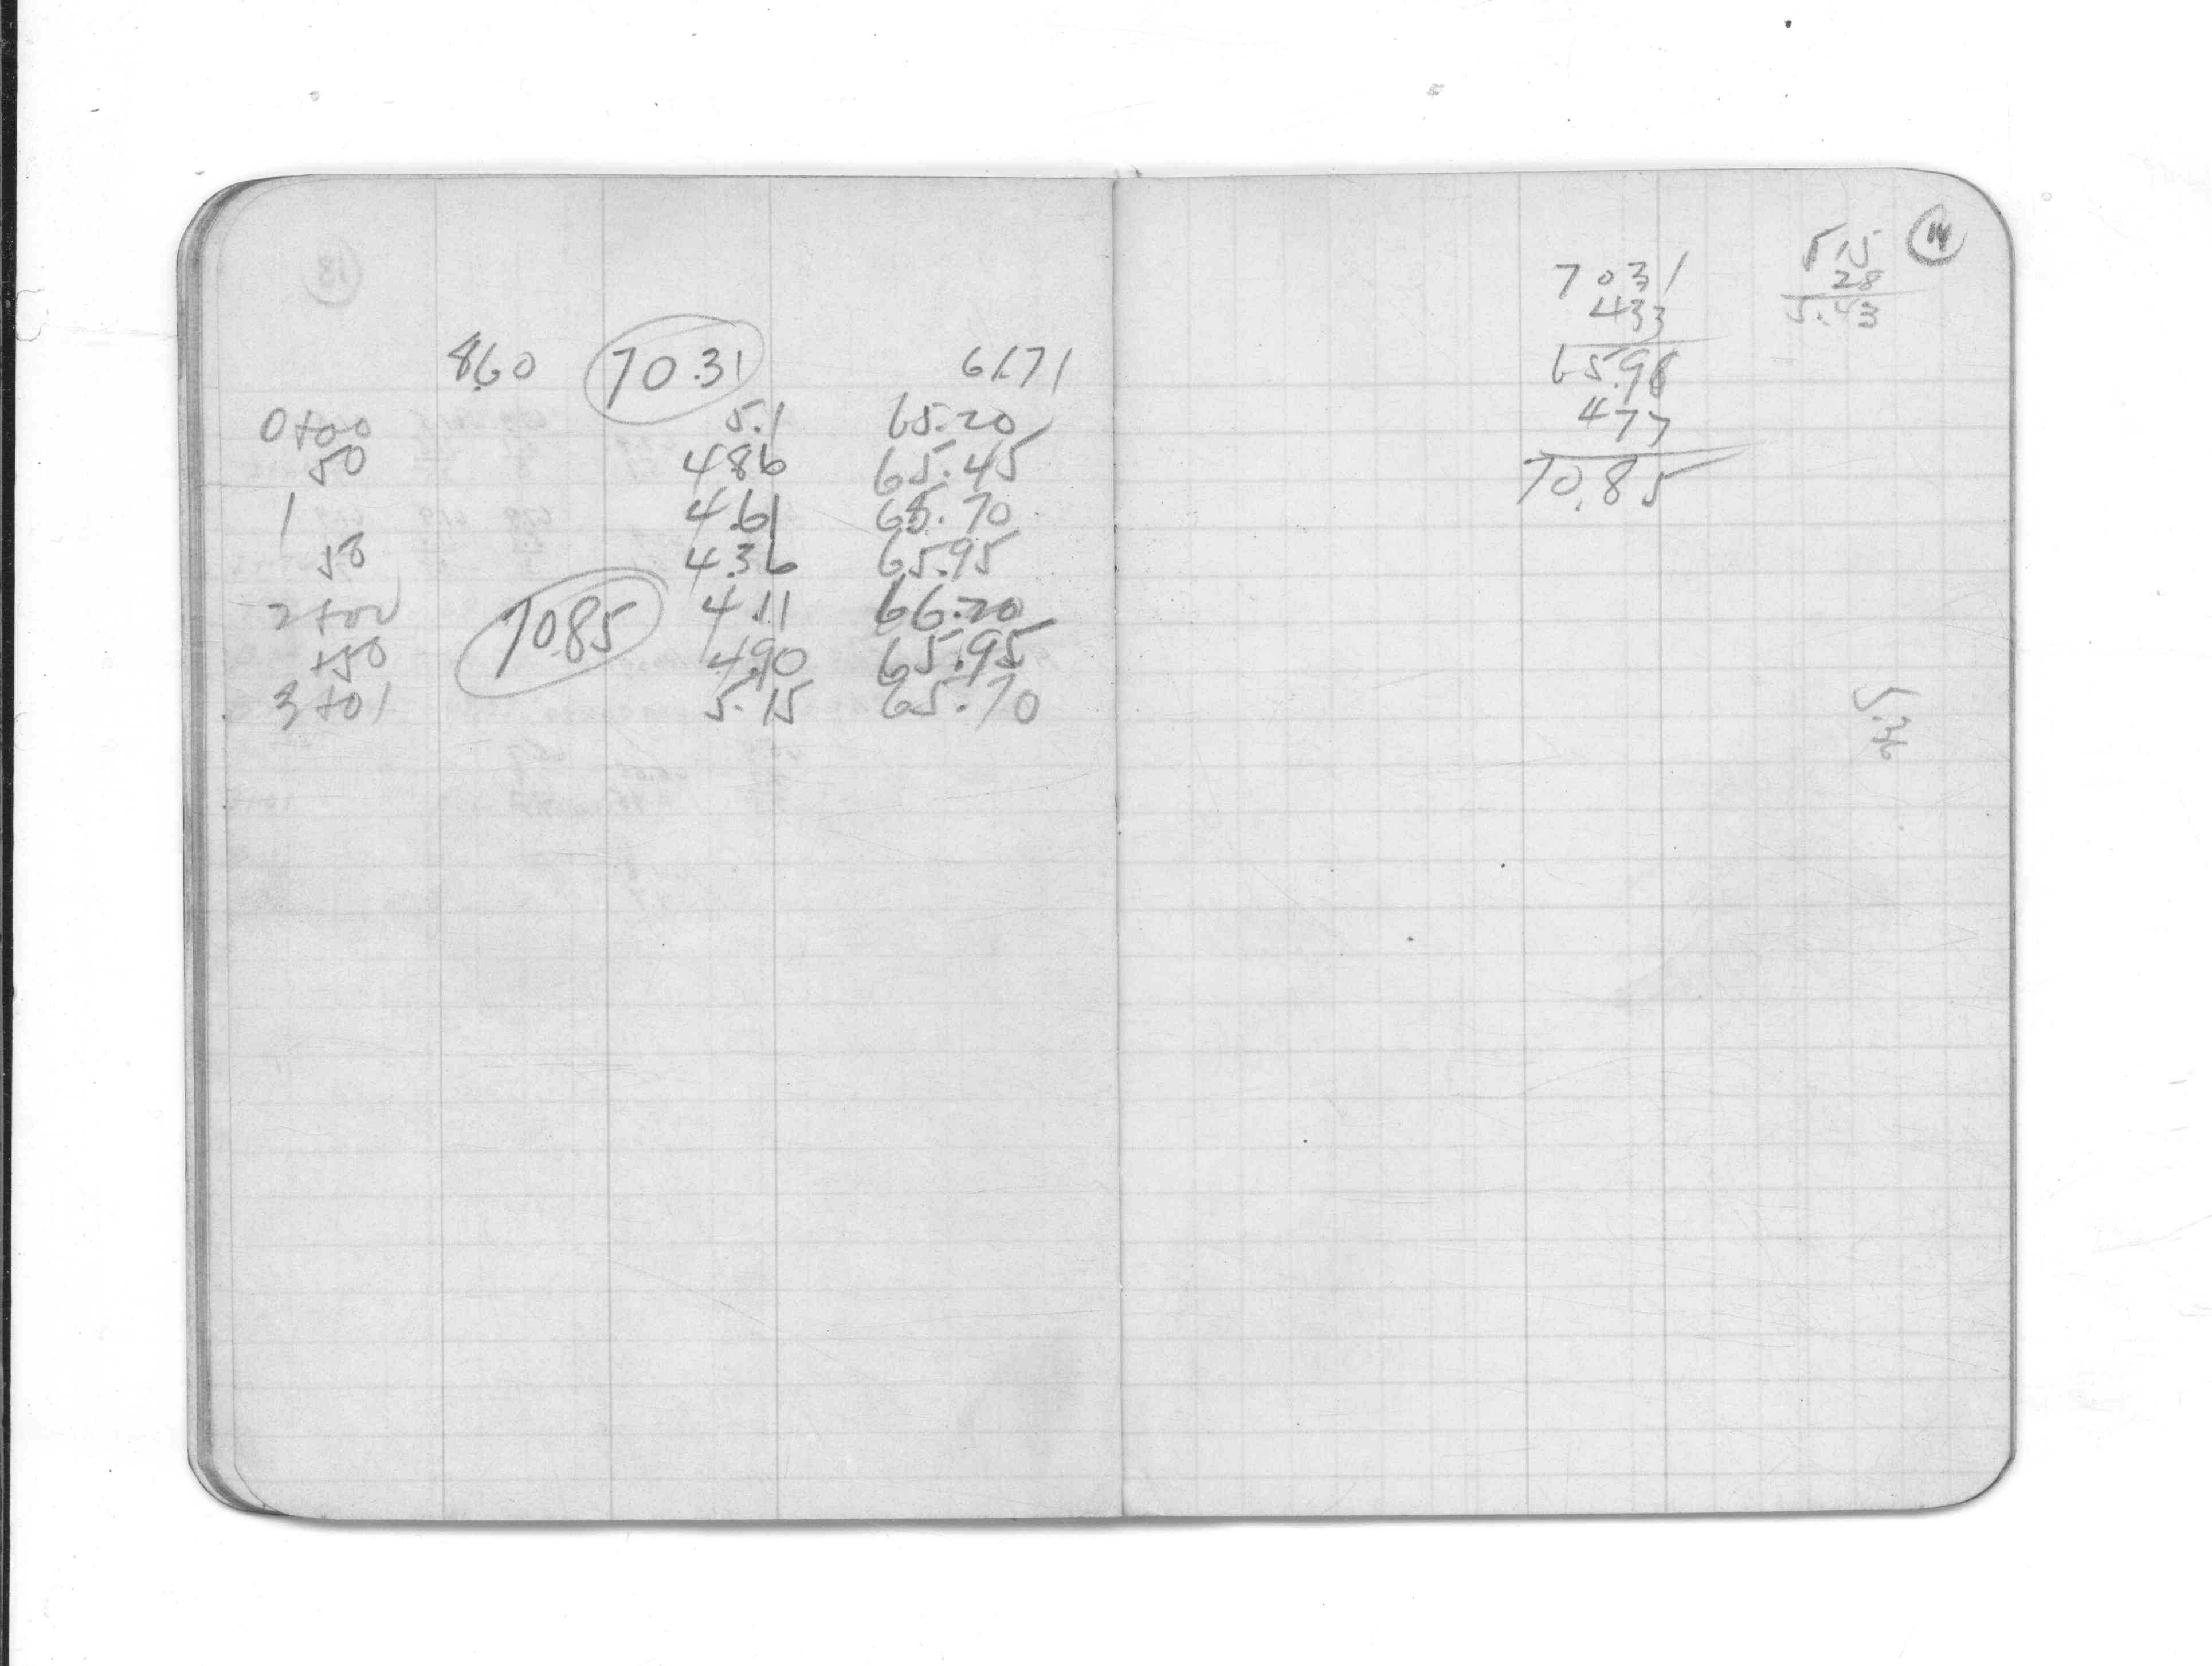 8.60 70.31 61.71
0+00 5.1 65.20
50 4.86 65.45
1 4.61 65.70
50 4.36 65.95
2+00 70.85 4.11 66.20
+50 4.90 65.95
3+01 5.15 65.70
14
7031
433
65.98
477
70.85
515
28
5.43
5.36